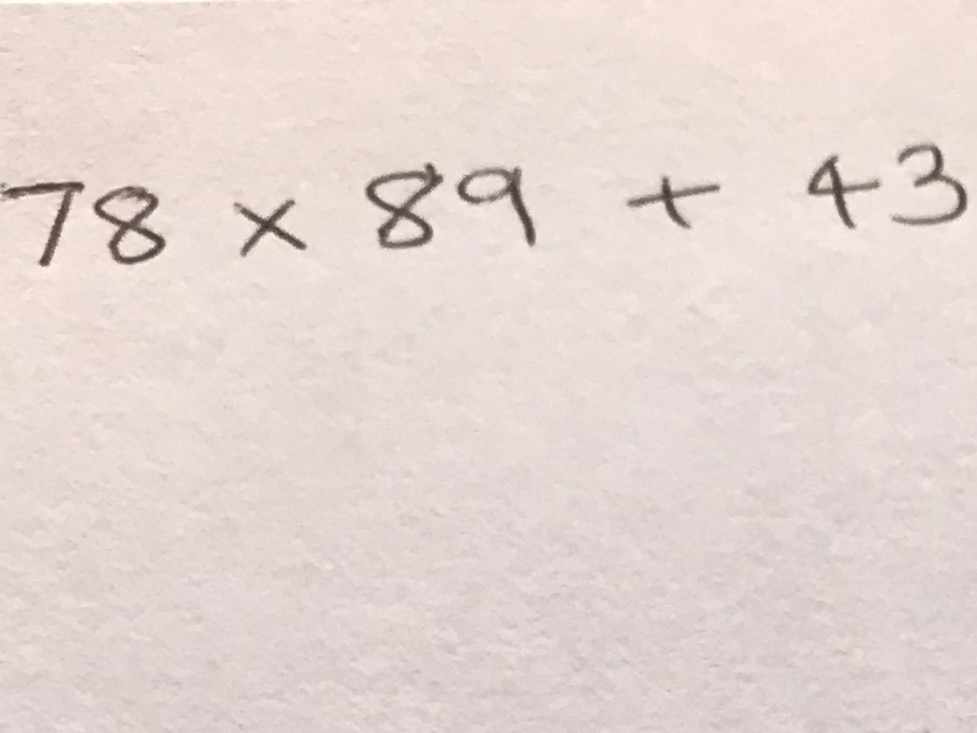 78 × 89 + 43